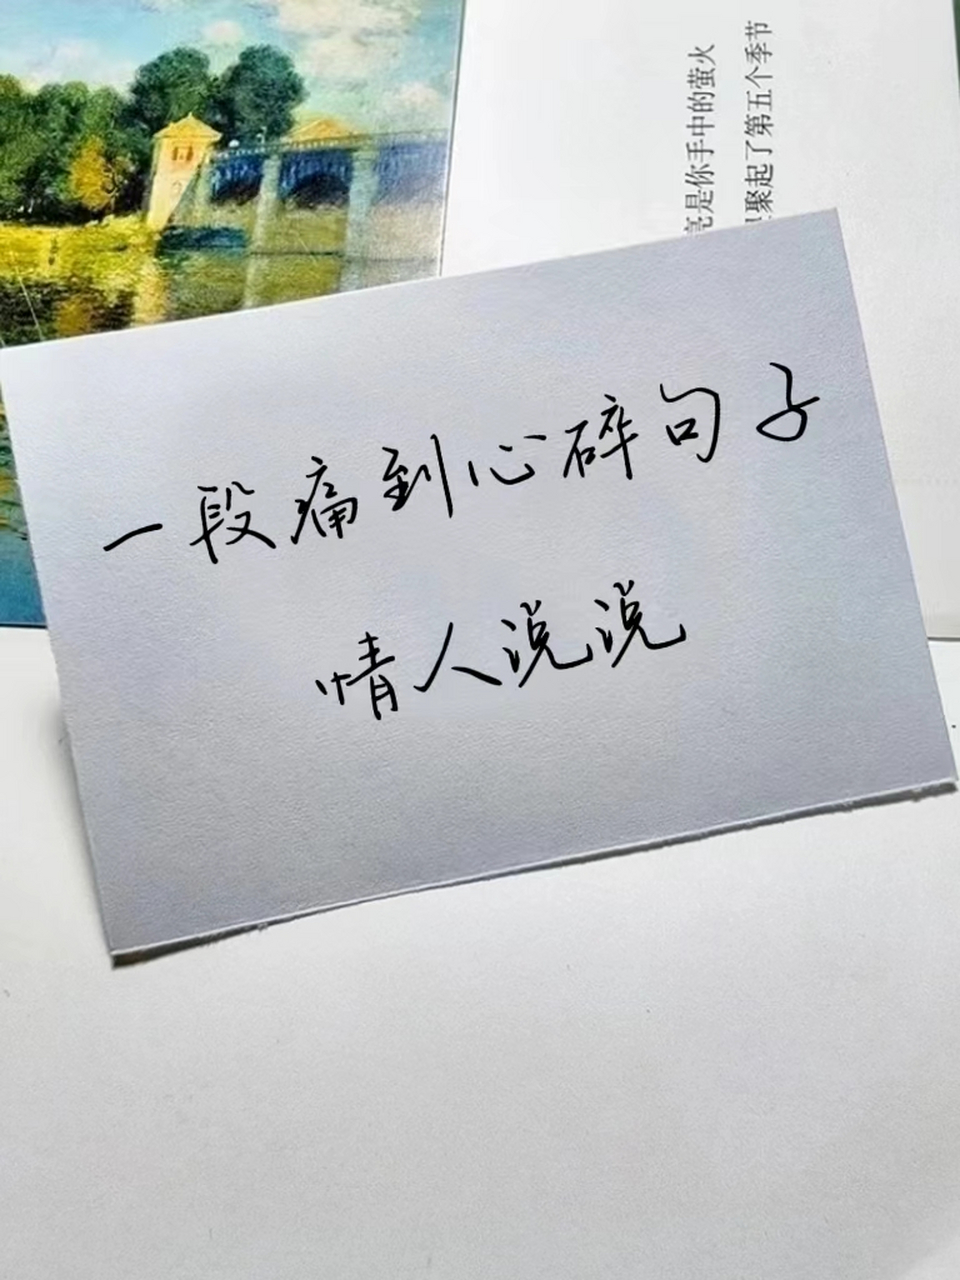 亮是你手中的萤火
聚起了第五个季节
一段痛到心碎句子
情人说说